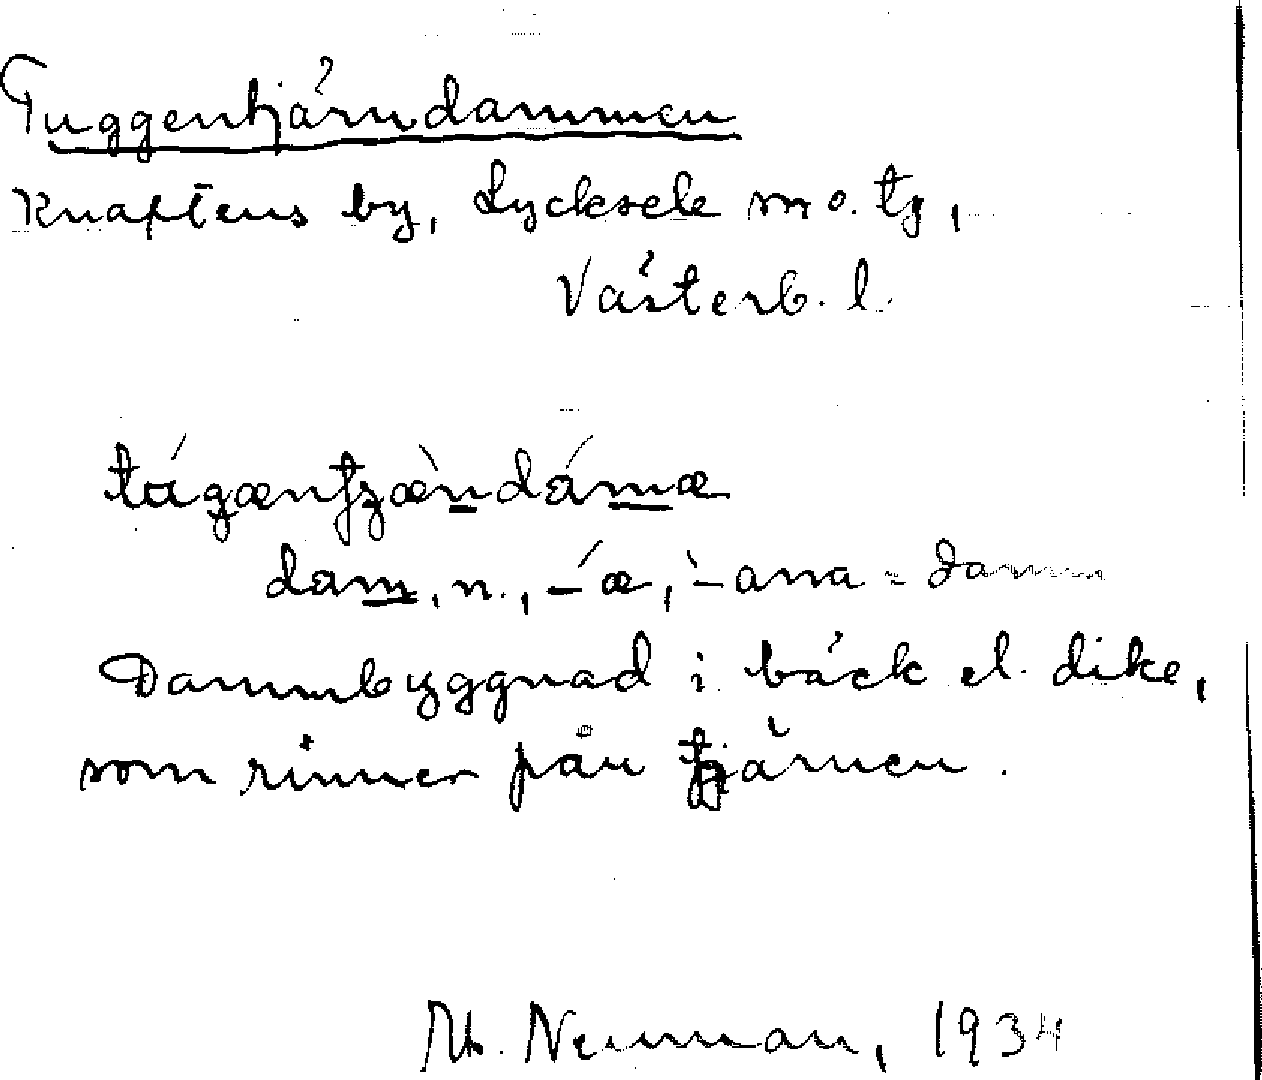 Tuggentjärndammen
Knaftens by, Lycksele mo. tg,
Västerb. l.
dam, n., -́æ, -̀ana = damm
Dammbyggnad i bäck el. dike,
som rinner från tjärnen.
Neuman, 1934